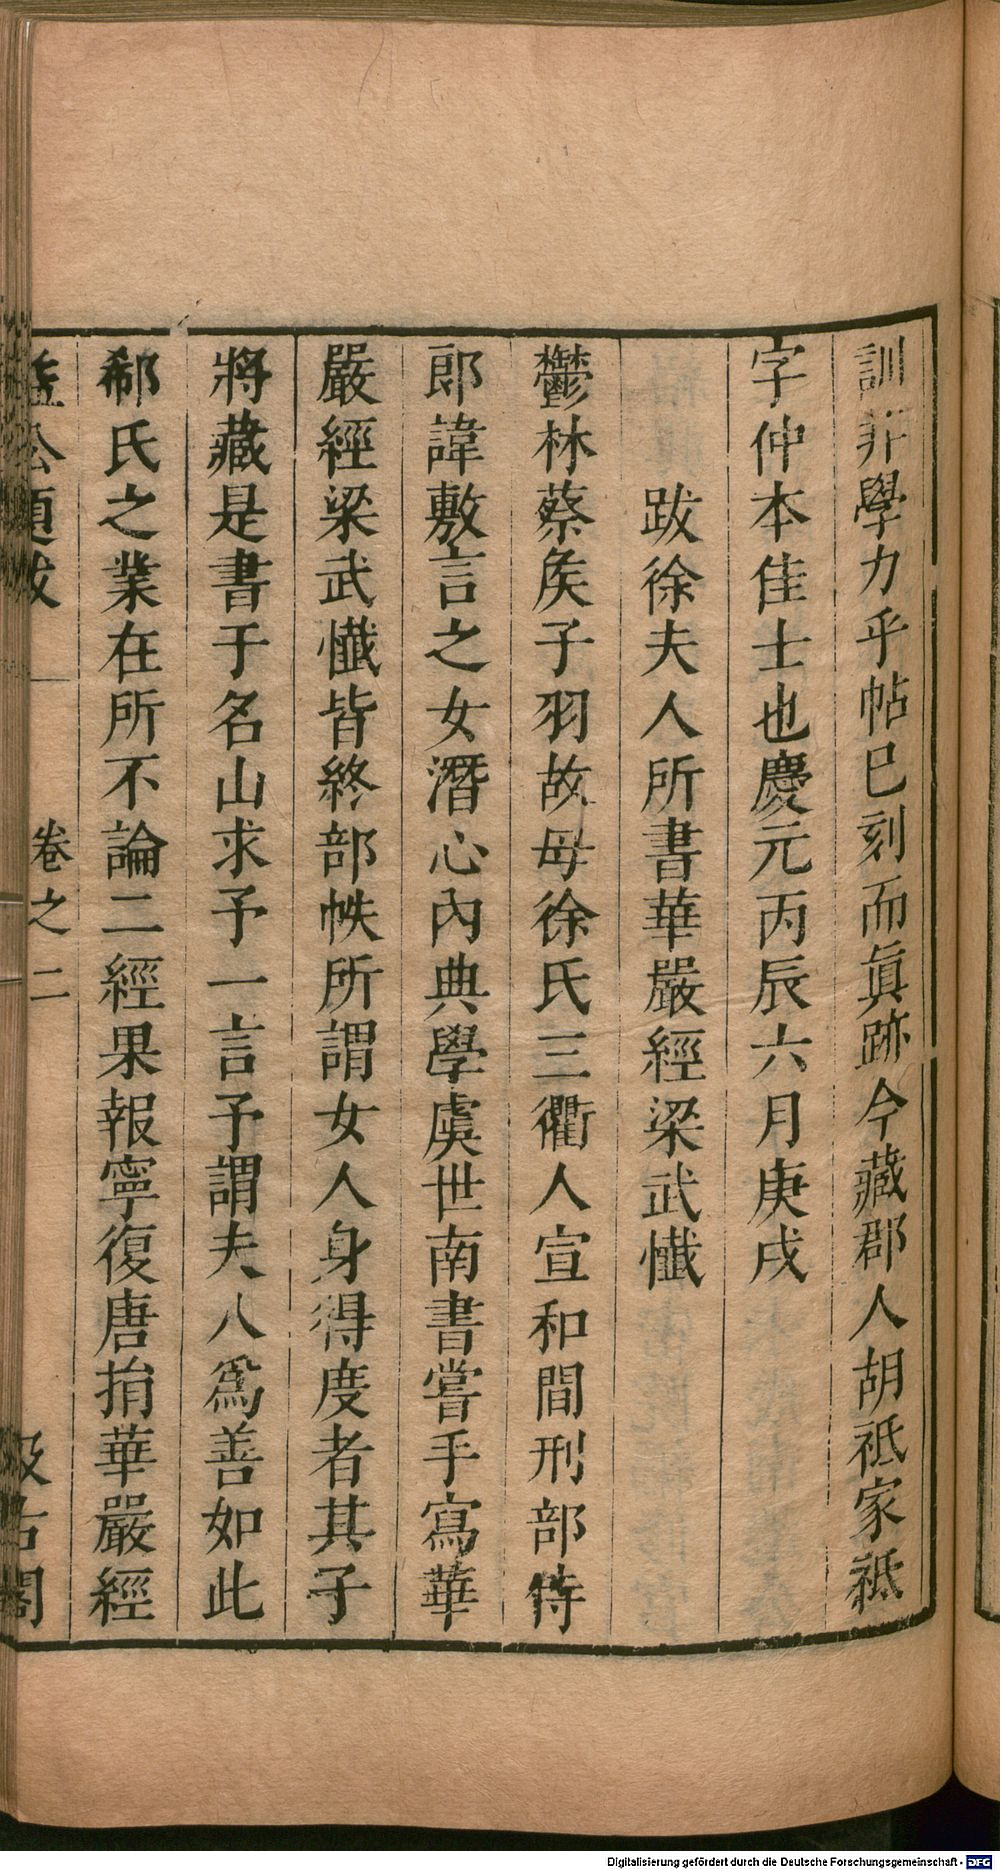 訓非學力乎帖巳刻而眞跡今藏郡人胡祗家祗
字仲本佳士也慶元丙辰六月庚戌
跋徐夫人所書華嚴經梁武懺
鬱林蔡矦子羽故母徐氏三衢人宣和間刑部侍
郎諱敷言之女潛心內典學虞世南書嘗手寫華
嚴經梁武懺皆終部帙所謂女人身得度者其子
將藏是書于名山求予一言予謂夫人爲善如此
郗氏之業在所不論二經果報寧復唐捐華嚴經
益公題跋 卷之二 汲古閣
Digitalisierung gefördert durch die Deutsche Forschungsgemeinschaft - DFG